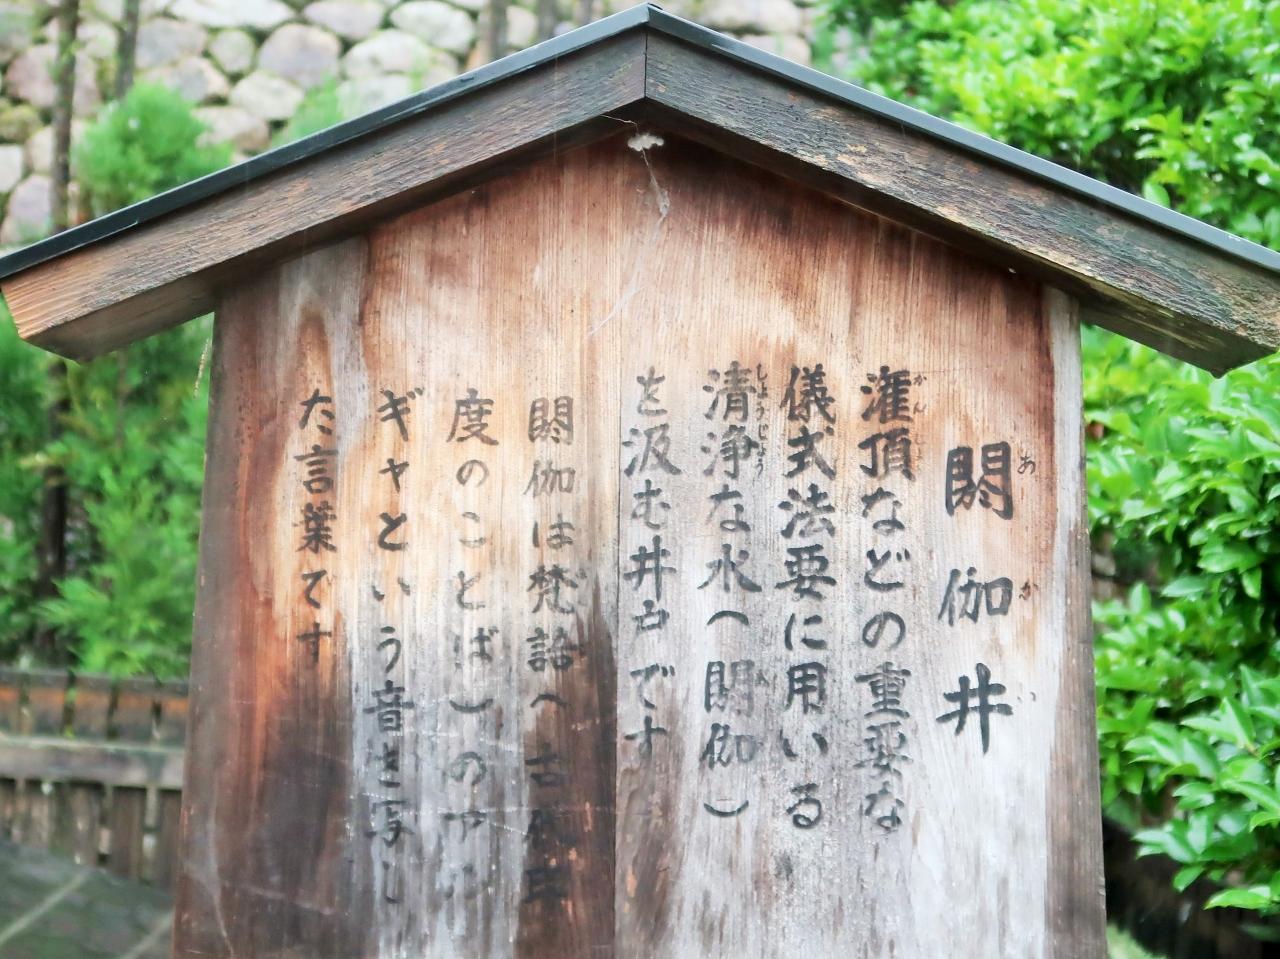 閼伽井
灌頂などの重要な
儀式法要に用いる
清浄な水(閼伽)
を汲む井戸です
閼伽は梵語(古代
度のことば)の
ギャという音を写し
た言葉です